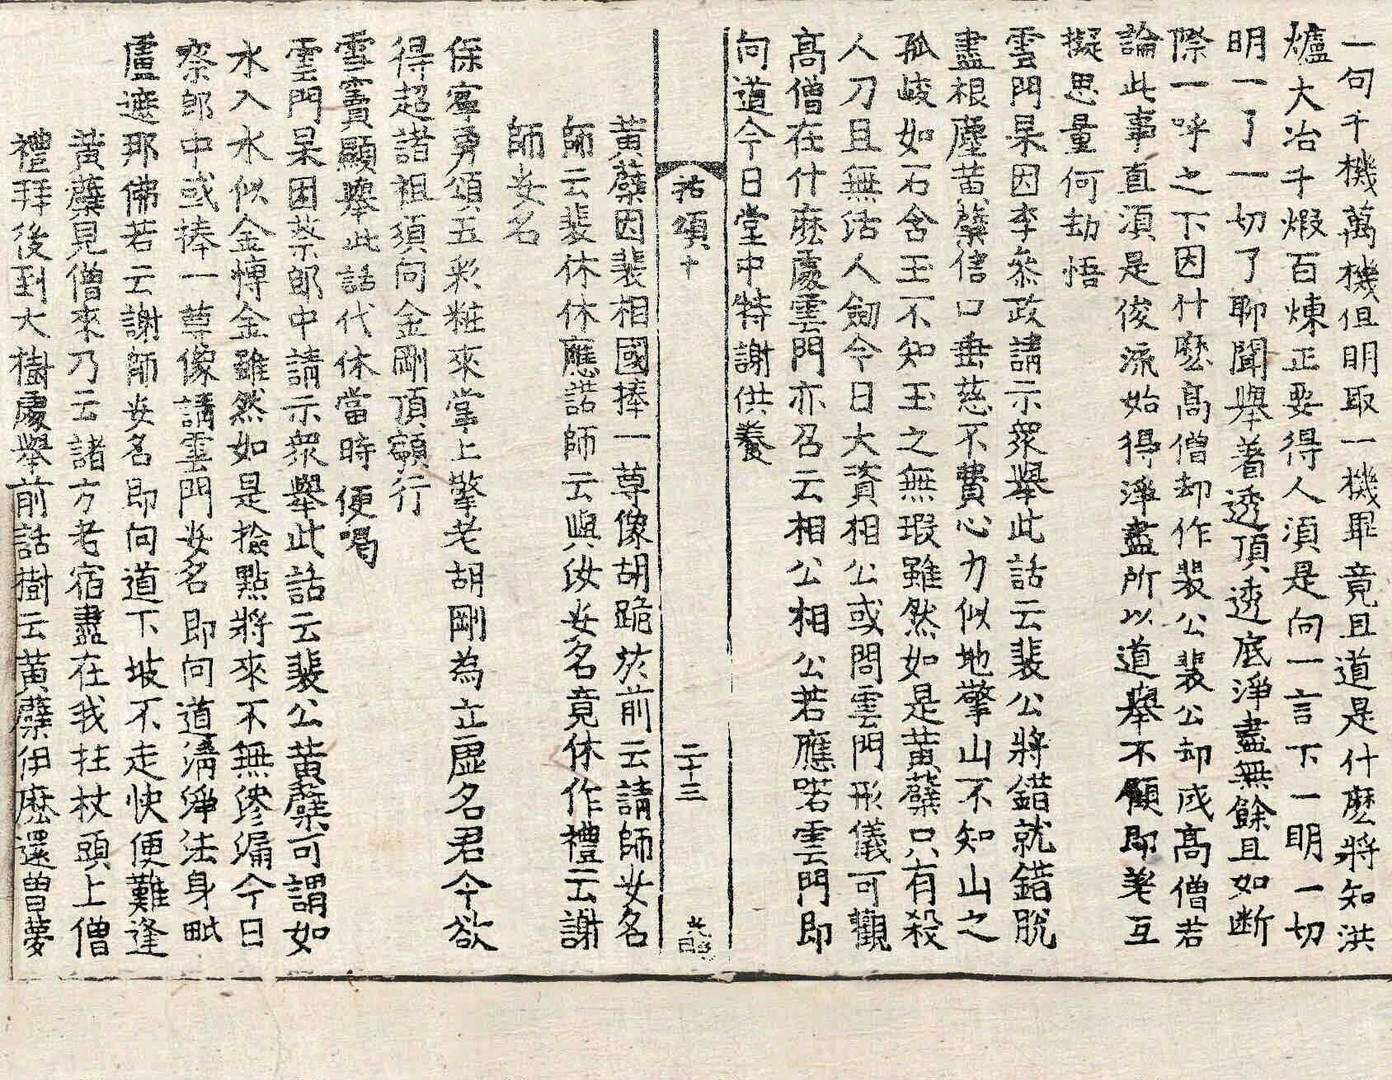 一句千機萬機但明取一機畢竟且道是什麽將知洪
爐大冶千煅百煉正要得人須是向一言下一明一切
明一了一切了聊聞舉著透頂透底淨盡無餘且如断
際一呼之下因什麽高僧却作裴公裴公却成高僧若
論此事直須是俊流始得淨盡所以道舉不顧即差互
擬思量何劫悟
雲門杲因李叅政請示衆舉此話云裴公將錯就錯脫
盡根塵黄蘗信口垂慈不費心力似地擎山不知山之
孤峻如石含玉不知玉之無瑕雖然如是黄蘗只有殺
人刀且無活人劒今日大資相公或問雲門形儀可觀
高僧在什麽處雲門亦召云相公相公若應喏雲門即
向道今日堂中特謝供養
拈頌十 二十三
黄蘗因裴相國捧一尊像胡跪於前云請師安名
師云裴休休應諾師云與汝安名竟休作禮云謝
師安名
保寧勇頌五彩粧來掌上擎老胡剛為立虛名君今欲
得超諸祖須向金剛頂𩕳行
雪竇顯舉此話代休當時便喝
雲門杲因蔡郎中請示衆舉此話云裴公黄蘗可謂如
水入水似金博金雖然如是撿點將來不無滲漏今日
蔡郎中或捧一尊像請雲門安名即向道淸淨法身毗
盧遮那佛若云謝師安名即向道下坡不走快便難逢
黄蘗見僧來乃云諸方老宿盡在我拄杖頭上僧
禮拜後到大樹處舉前話樹云黄蘗伊麽還曾夢